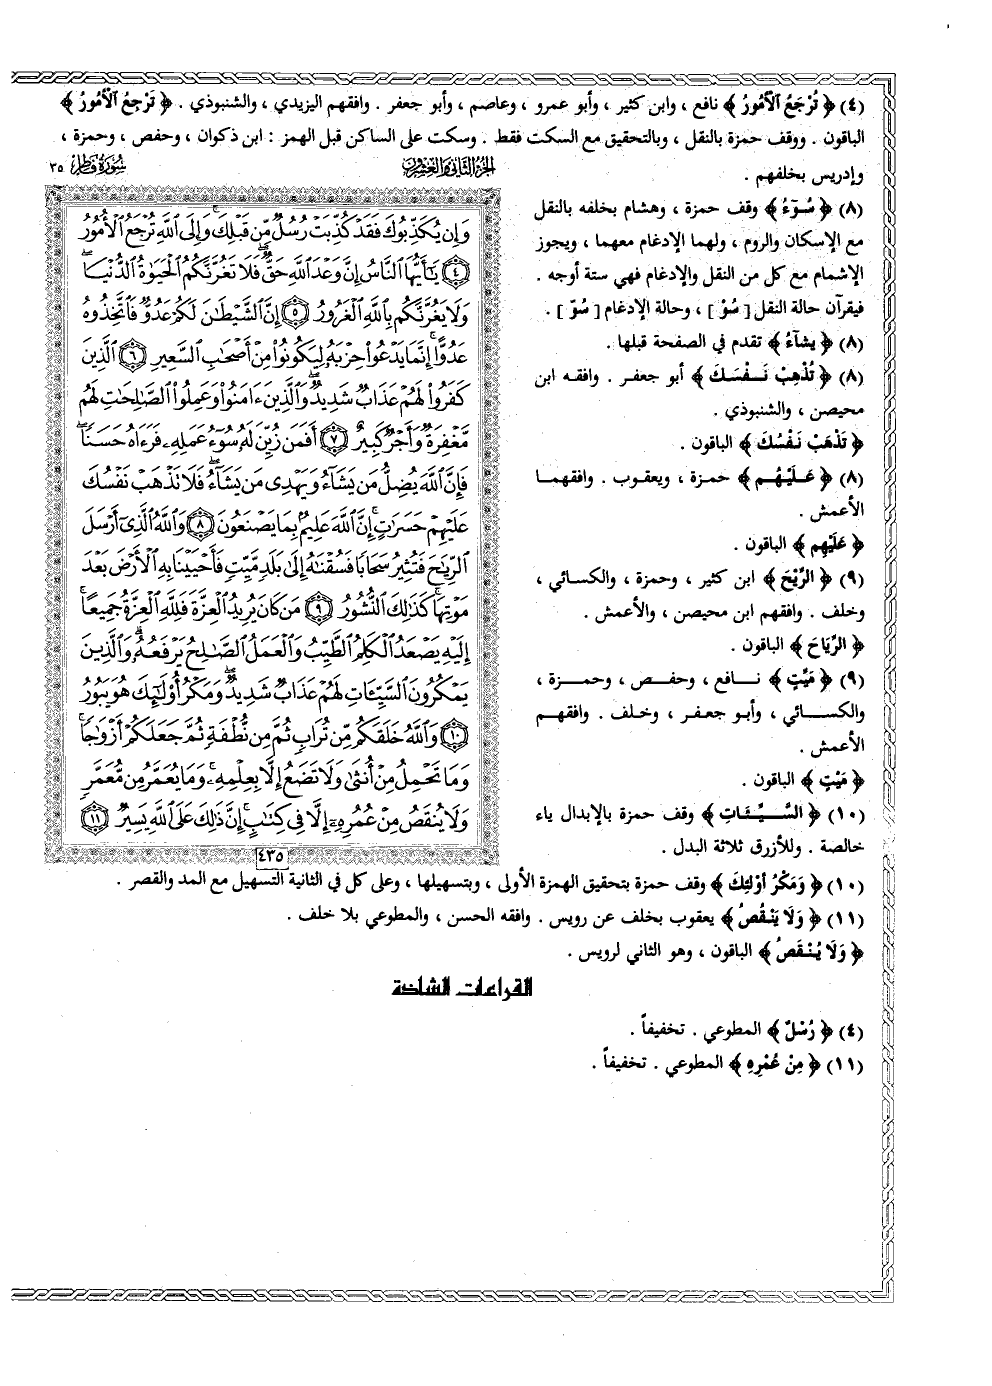 (٤) ﴿ تُرْجَعُ ٱلْأُمُورُ ﴾ نافع ، وابن كثير ، وأبو عمرو ، وعاصم ، وأبو جعفر . وافقهم اليزيدي ، والشنبوذي . ﴿ تَرْجِعُ ٱلْأُمُورُ ﴾
الباقون . ووقف حمزة بالنقل ، وبالتحقيق مع السكت فقط . وسكت على الساكن قبل الهمز : ابن ذكوان ، وحفص ، وحمزة ،
وإدريس بخلفهم .
الجزء الثاني والعشرون
سورة فاطر ٣٥
(٨) ﴿ سُوٓءُ ﴾ وقف حمزة ، وهشام بخلفه بالنقل
مع الإسكان والروم ، ولهما الإدغام معهما ، ويجوز
الإشمام مع كل من النقل والإدغام فهي ستة أوجه .
فيقرآن حالة النقل [ سُوْ ] ، وحالة الإدغام [ سُوّ ] .
(٨) ﴿ يشآءُ ﴾ تقدم في الصفحة قبلها .
(٨) ﴿ تُذْهِبْ نَـفْسَكَ ﴾ أبو جعفر . وافقه ابن
محيصن ، والشنبوذي .
﴿ تَذْهَبْ نَفْسُكَ ﴾ الباقون .
(٨) ﴿ عَلَيْهُم ﴾ حمزة ، ويعقوب . وافقهما
الأعمش .
﴿ عَلَيْهِم ﴾ الباقون .
(٩) ﴿ الرِّيْحَ ﴾ ابن كثير ، وحمزة ، والكسائي ،
وخلف . وافقهم ابن محيصن ، والأعمش .
﴿ الرِّيَاحَ ﴾ الباقون .
(٩) ﴿ مَيِّتٍ ﴾ نافع ، وحفص ، وحمزة ،
والكسائي ، وأبو جعفر ، وخلف . وافقهم
الأعمش .
﴿ مَيْتٍ ﴾ الباقون .
(١٠) ﴿ السَّيِّئَاتِ ﴾ وقف حمزة بالإبدال ياء
خالصة . وللأزرق ثلاثة البدل .
وَإِن يُكَذِّبُوكَ فَقَدْ كُذِّبَتْ رُسُلٌ مِّن قَبْلِكَ ۚ وَإِلَى ٱللَّهِ تُرْجَعُ ٱلْأُمُورُ
﴿٤﴾ يَٰٓأَيُّهَا ٱلنَّاسُ إِنَّ وَعْدَ ٱللَّهِ حَقٌّ ۖ فَلَا تَغُرَّنَّكُمُ ٱلْحَيَوٰةُ ٱلدُّنْيَا ۖ
وَلَا يَغُرَّنَّكُم بِٱللَّهِ ٱلْغَرُورُ ﴿٥﴾ إِنَّ ٱلشَّيْطَٰنَ لَكُمْ عَدُوٌّ فَٱتَّخِذُوهُ
عَدُوًّا ۚ إِنَّمَا يَدْعُوا۟ حِزْبَهُۥ لِيَكُونُوا۟ مِنْ أَصْحَٰبِ ٱلسَّعِيرِ ﴿٦﴾ ٱلَّذِينَ
كَفَرُوا۟ لَهُمْ عَذَابٌ شَدِيدٌ ۖ وَٱلَّذِينَ ءَامَنُوا۟ وَعَمِلُوا۟ ٱلصَّٰلِحَٰتِ لَهُم
مَّغْفِرَةٌ وَأَجْرٌ كَبِيرٌ ﴿٧﴾ أَفَمَن زُيِّنَ لَهُۥ سُوٓءُ عَمَلِهِۦ فَرَءَاهُ حَسَنًا ۖ
فَإِنَّ ٱللَّهَ يُضِلُّ مَن يَشَآءُ وَيَهْدِى مَن يَشَآءُ ۖ فَلَا تَذْهَبْ نَفْسُكَ
عَلَيْهِمْ حَسَرَٰتٍ ۚ إِنَّ ٱللَّهَ عَلِيمٌۢ بِمَا يَصْنَعُونَ ﴿٨﴾ وَٱللَّهُ ٱلَّذِىٓ أَرْسَلَ
ٱلرِّيَٰحَ فَتُثِيرُ سَحَابًا فَسُقْنَٰهُ إِلَىٰ بَلَدٍ مَّيِّتٍ فَأَحْيَيْنَا بِهِ ٱلْأَرْضَ بَعْدَ
مَوْتِهَا ۚ كَذَٰلِكَ ٱلنُّشُورُ ﴿٩﴾ مَن كَانَ يُرِيدُ ٱلْعِزَّةَ فَلِلَّهِ ٱلْعِزَّةُ جَمِيعًا ۚ
إِلَيْهِ يَصْعَدُ ٱلْكَلِمُ ٱلطَّيِّبُ وَٱلْعَمَلُ ٱلصَّٰلِحُ يَرْفَعُهُۥ ۚ وَٱلَّذِينَ
يَمْكُرُونَ ٱلسَّيِّـَٔاتِ لَهُمْ عَذَابٌ شَدِيدٌ ۖ وَمَكْرُ أُو۟لَٰٓئِكَ هُوَ يَبُورُ
﴿١٠﴾ وَٱللَّهُ خَلَقَكُم مِّن تُرَابٍ ثُمَّ مِن نُّطْفَةٍ ثُمَّ جَعَلَكُمْ أَزْوَٰجًا ۚ
وَمَا تَحْمِلُ مِنْ أُنثَىٰ وَلَا تَضَعُ إِلَّا بِعِلْمِهِۦ ۚ وَمَا يُعَمَّرُ مِن مُّعَمَّرٍ
وَلَا يُنقَصُ مِنْ عُمُرِهِۦٓ إِلَّا فِى كِتَٰبٍ ۚ إِنَّ ذَٰلِكَ عَلَى ٱللَّهِ يَسِيرٌ ﴿١١﴾
٤٣٥
(١٠) ﴿ وَمَكْرُ أُوْلَئِكَ ﴾ وقف حمزة بتحقيق الهمزة الأولى ، وبتسهيلها ، وعلى كل في الثانية التسهيل مع المد والقصر .
(١١) ﴿ وَلَا يَنْقُصُ ﴾ يعقوب بخلف عن رويس . وافقه الحسن ، والمطوعي بلا خلف .
﴿ وَلَا يُنْقَصُ ﴾ الباقون ، وهو الثاني لرويس .
القراءات الشاذة
(٤) ﴿ رُسْلٌ ﴾ المطوعي . تخفيفاً .
(١١) ﴿ مِنْ عُمْرِهِ ﴾ المطوعي . تخفيفاً .